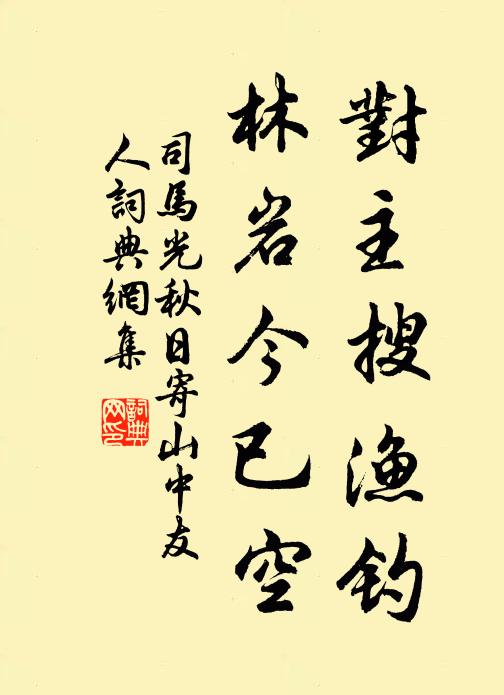 對主搜漁釣
林岩今已空
司馬光秋日寄山中友
人詞典網集
詞典
网印